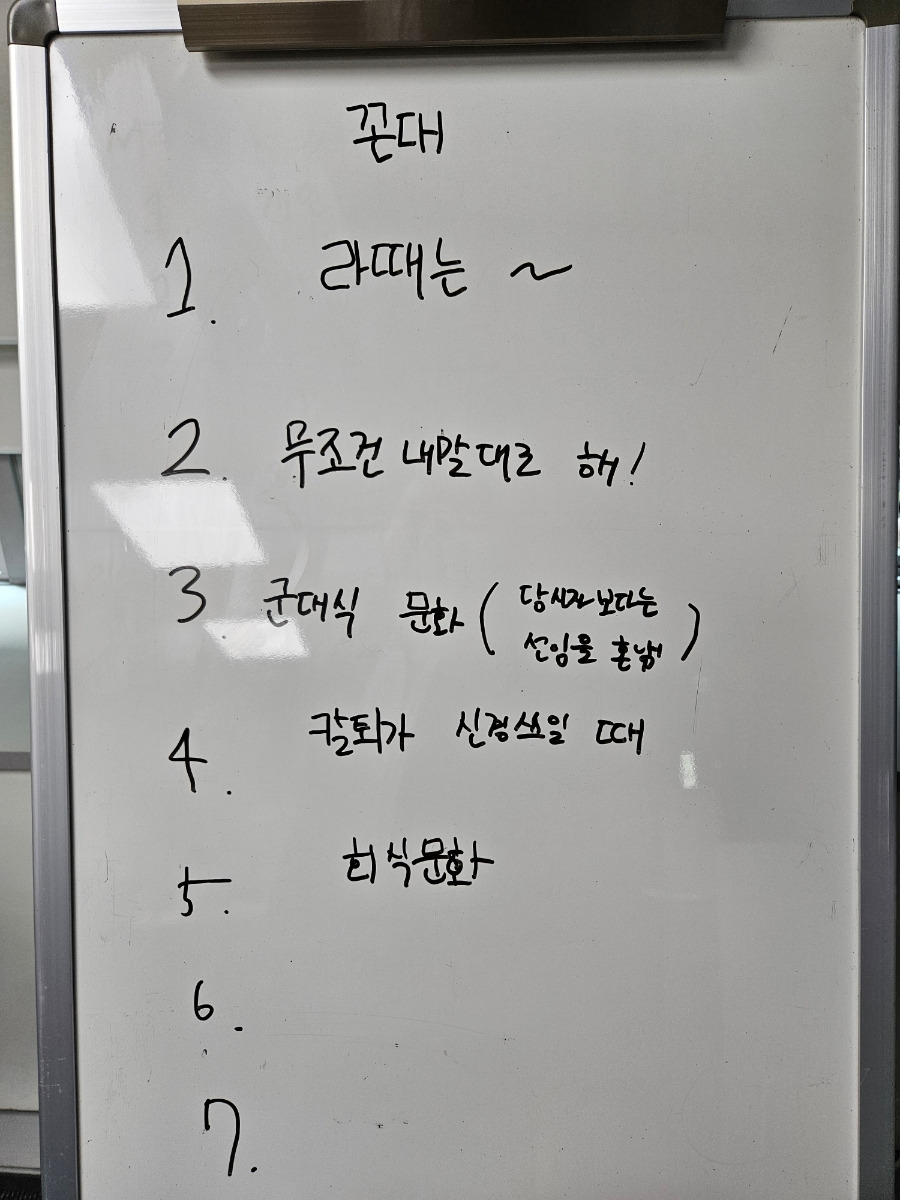 꼰대
1. 라떼는 ~
2. 무조건 내말대로 해!
3. 군대식 문화 ( 당사자보다는
선임을 혼냄 )
4. 칼퇴가 신경쓰일 때
5. 회식문화
6.
7.